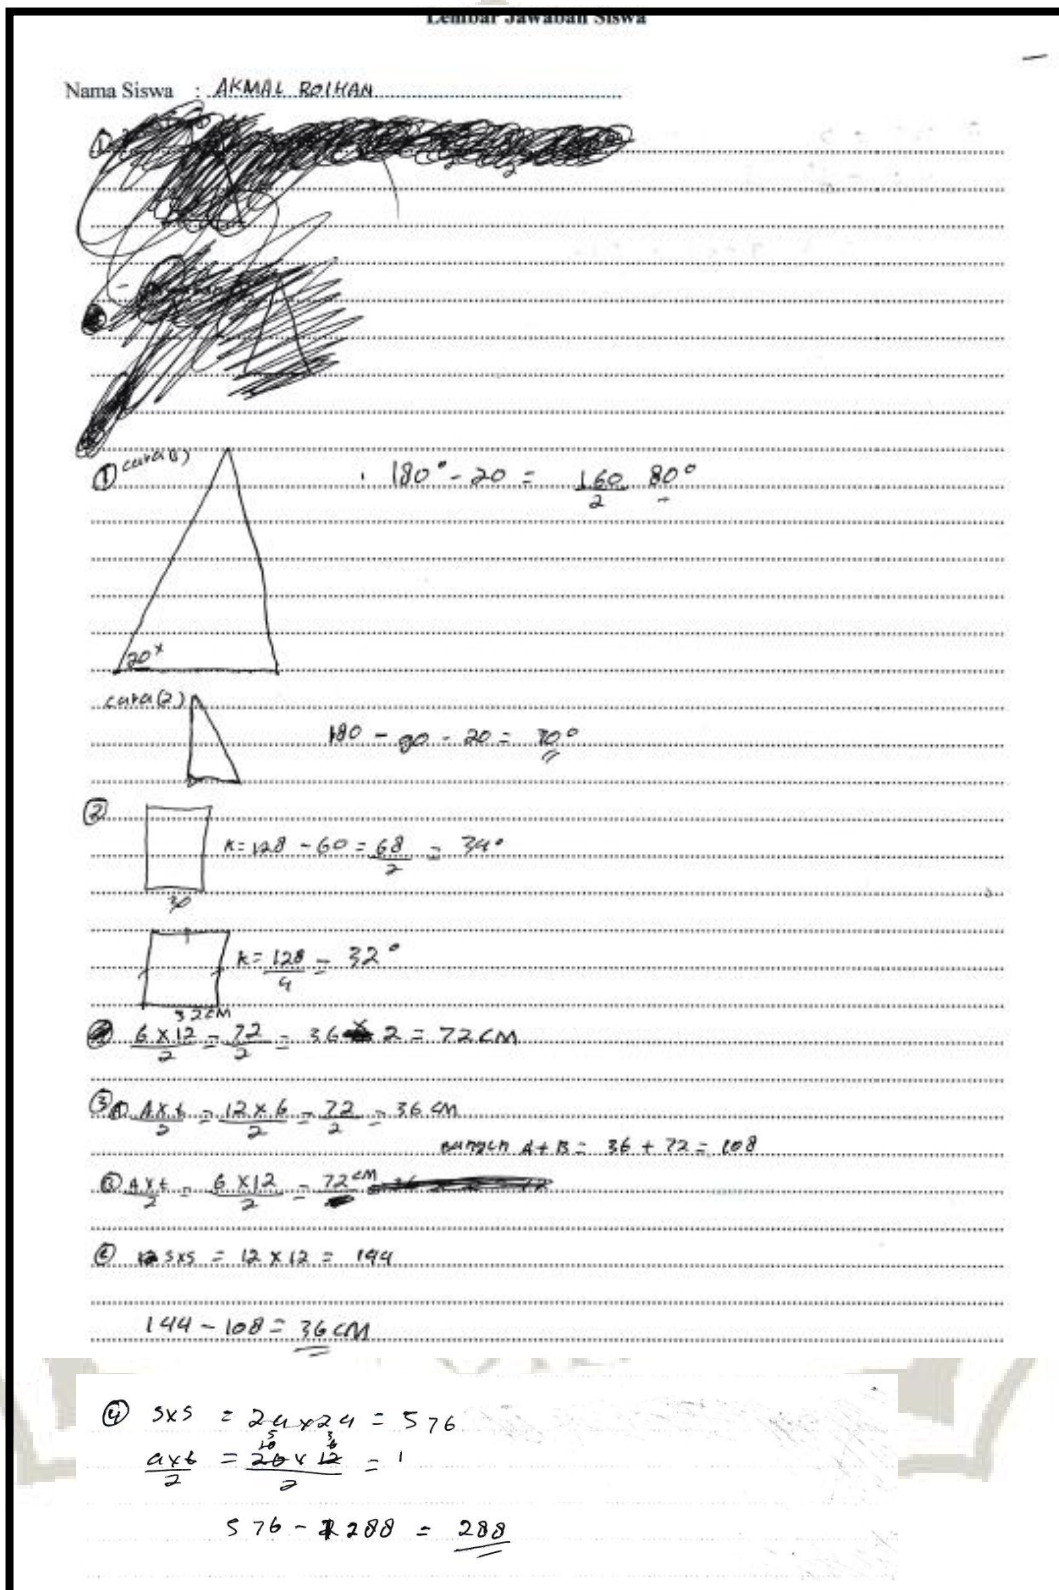 Lembar Jawaban Siswa
Nama Siswa : AKMAL ROIHAN
① cara(1) 180° - 20 = 160/2 80°
20x
cara(2)
180 - 90 - 20 = 70°
②
K = 128 - 60 = 68/2 = 34°
30
K = 128/4 = 32°
32 cm
6 x 12/2 = 72/2 = 36 x 2 = 72 cm
③ A x t/2 = 12 x 6/2 = 72/2 = 36 cm
Bangun A + B = 36 + 72 = 108
A x t/2 = 6 x 12/2 = 72 cm
sxs = 12 x 12 = 144
144 - 108 = 36 cm
④ sxs = 24 x 24 = 576
a x t/2 = 12/2 = 1
576 - 288 = 288